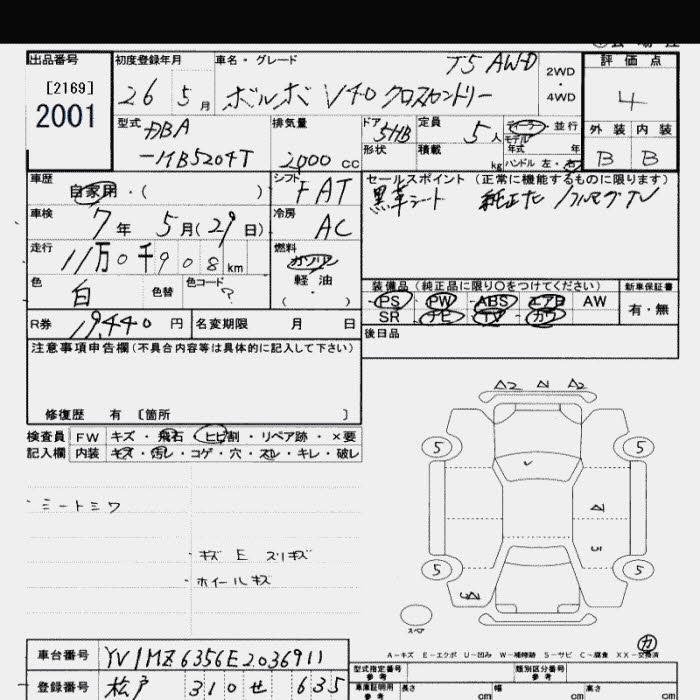 出品番号 初度登録年月 車名・グレード T5 AWD 2WD・4WD 評価点
[2169]
2001 26 5月 ボルボ V40 クロスカントリー 4
型式 DBA-MB5204T 排気量 2,000 cc ドア 5HB 形状 定員 5人 積載 kg ディーラー・並行 モデル年式 年 ハンドル 左・右
外装 内装
B B
車歴 自家用・( ) シフト FAT
セールスポイント (正常に機能するものに限ります)
黒革シート 純正ナビ フルセグTV
車検 7年 5月(29日) 冷房 AC
走行 11万0千908km 燃料 ガソリン 軽・油 ( ・ )
色 白 色替 色コード ?
装備品(純正品に限り〇をつけてください) 新車保証書
PS PW ABS エアB AW 有・無
SR ナビ TV カワ
R券 19,440円 名変期限 月 日
後日品
注意事項申告欄(不具合内容等は具体的に記入して下さい)
修復歴 有 〔箇所 〕
検査員 FW キズ・飛石・ヒビ割・リペア跡・×要
記入欄 内装 キズ・汚レ・コゲ・穴・スレ・キレ・破レ
シートシワ
キズ E スリキズ
ホイールキズ
A2 N A2
5 5
5 5
スペア
A-キズ E-エクボ U-凹み W-補修跡 S-サビ C-腐食 XX-交換済
車台番号 YV1MZ6356E2036911
登録番号 松戸 310 せ 635
型式指定番号 参考 類別区分番号 参考
車庫証明用 参考 長さ cm 幅 cm 高さ cm